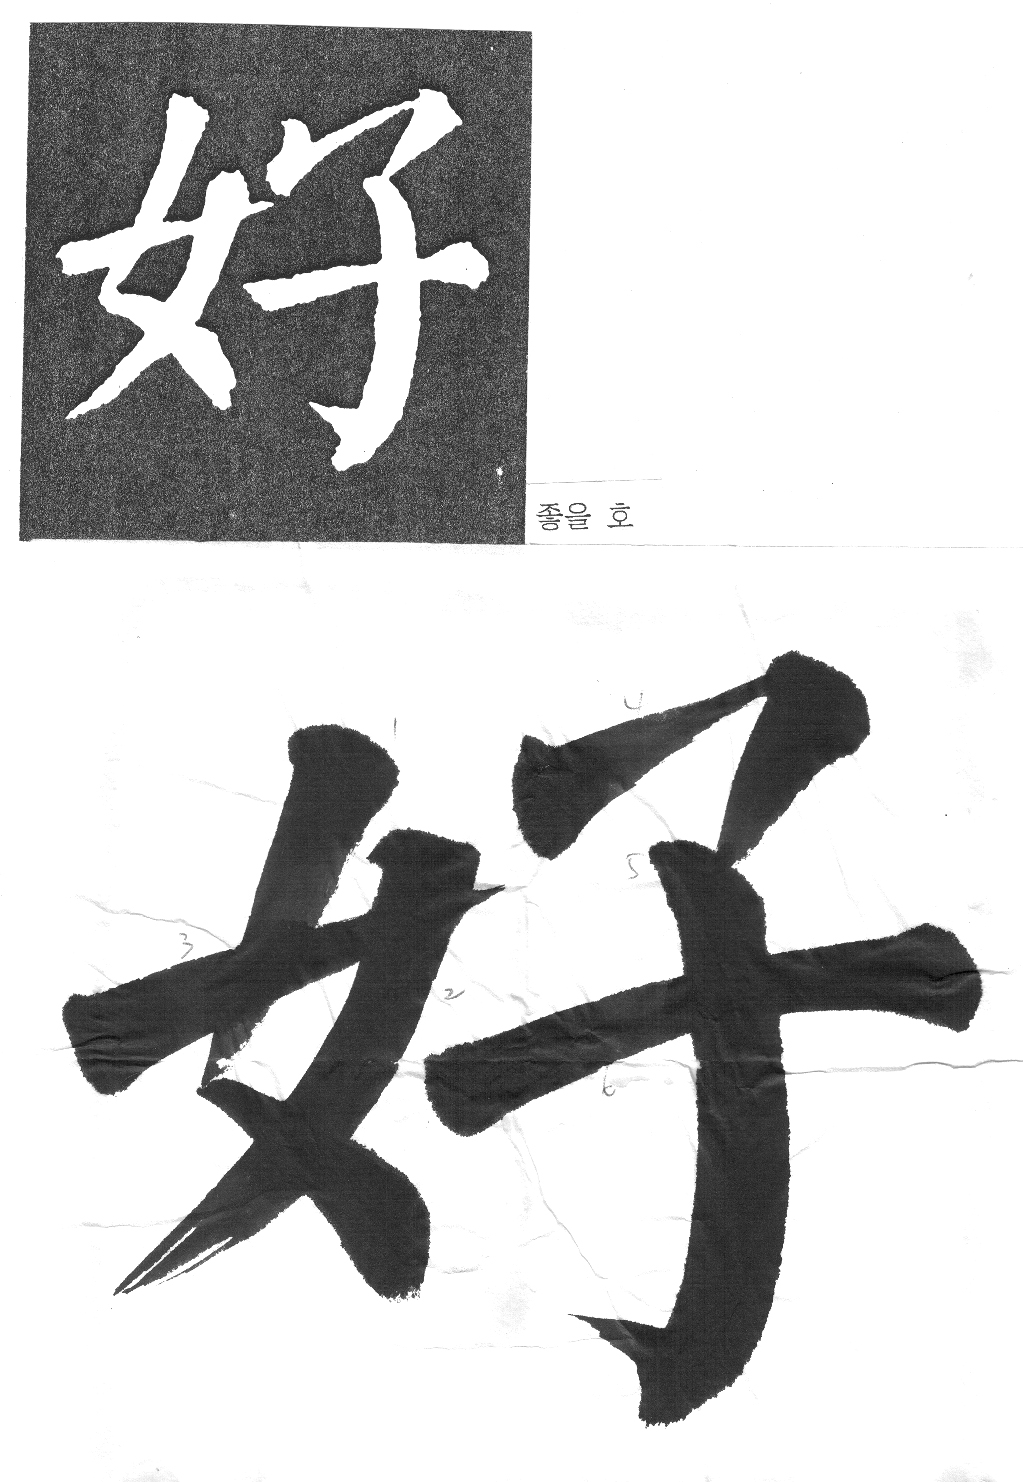 好
좋을 호
好
1
4
5
3
2
6